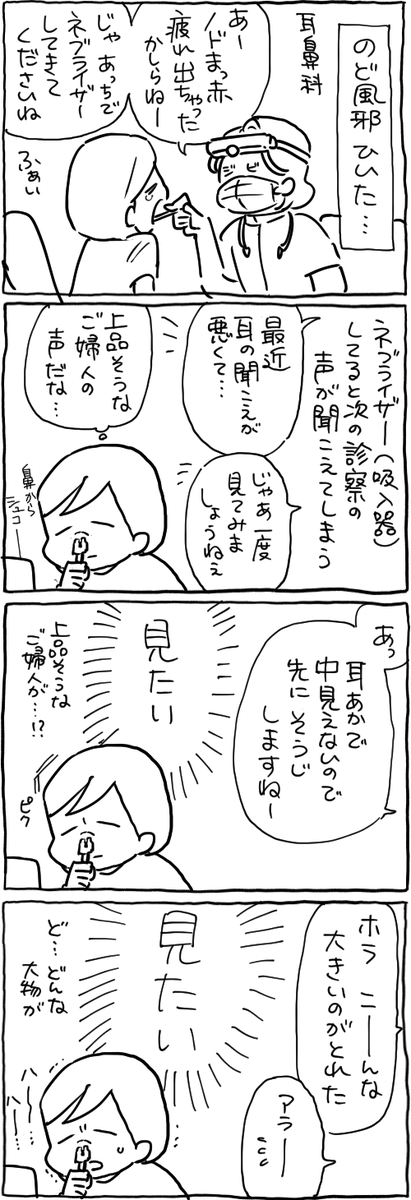 のど風邪ひいた…
耳鼻科
あー
ノドまっ赤
疲れ出ちゃった
かしらねー
じゃあっちで
ネブライザー
してきて
くださいね
ふぁい
ネブライザー(吸入器)
してると次の診察の
声が聞こえてしまう
最近
耳の聞こえが
悪くて…
じゃあ一度
見てみま
しょうねぇ
上品そうな
ご婦人の
声だな…
鼻から
シュコー
あっ
耳あかで
中見えないので
先にそうじ
しますねー
見たい
上品そうな
ご婦人が…!?
ピク
ホラ こーんな
大きいのがとれた
アラー
見たい
ど…どんな
大物が
ハー
ハー